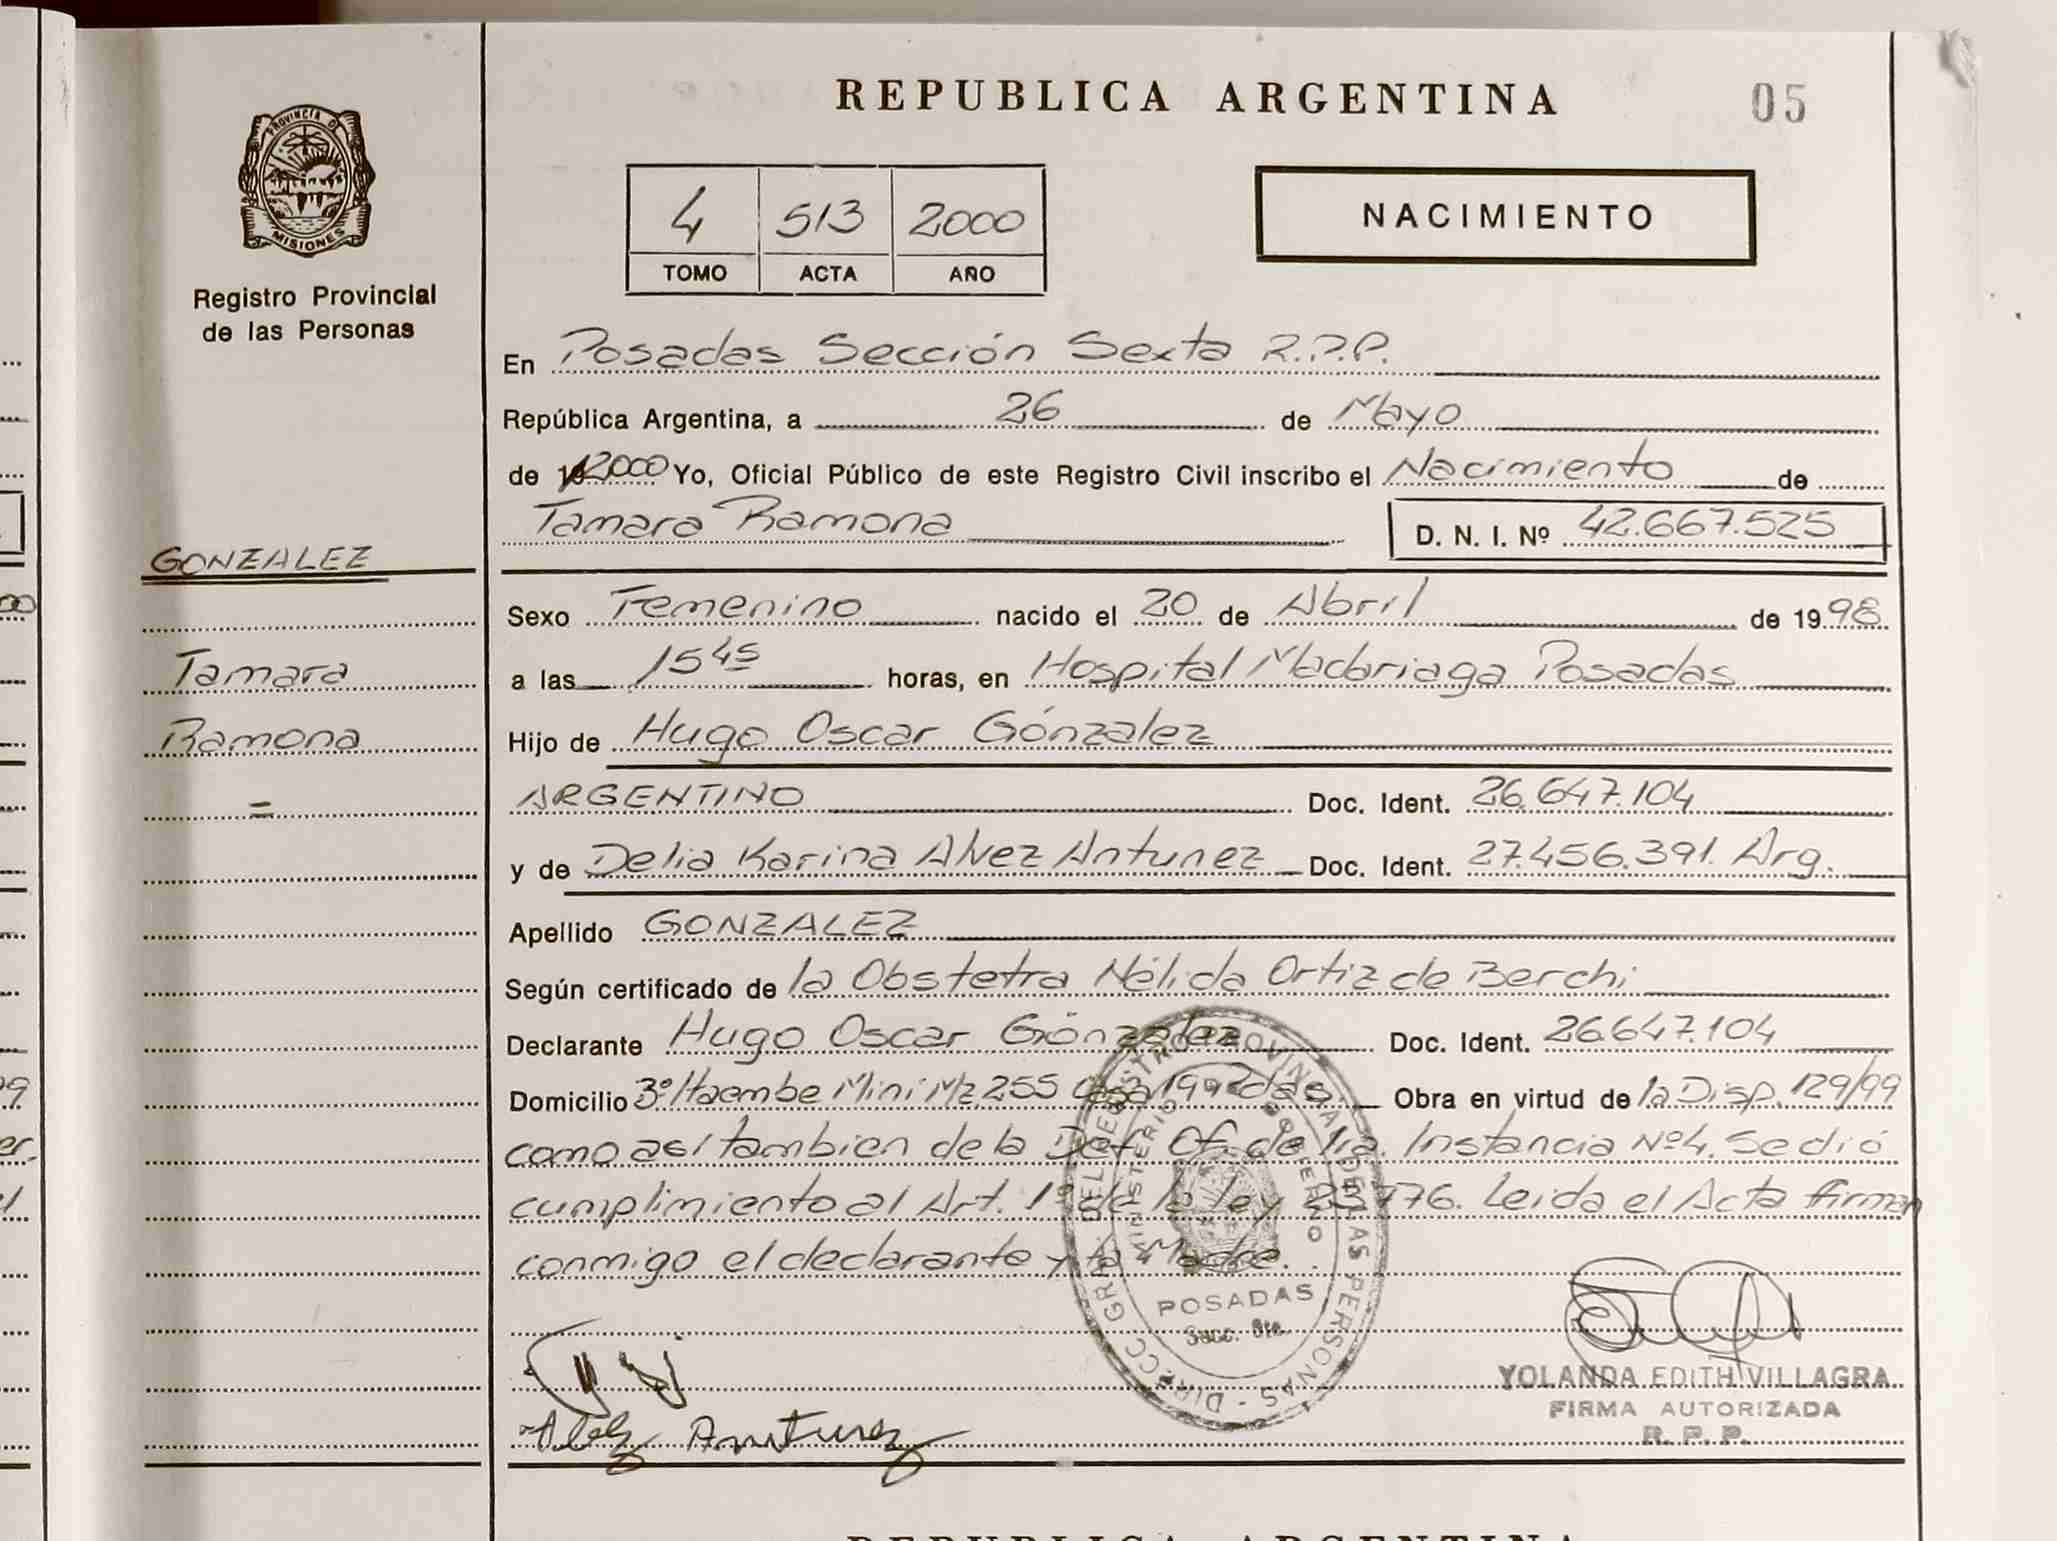 REPUBLICA ARGENTINA
05
PROVINCIA DE
MISIONES
Registro Provincial
de las Personas
4 513 2000
TOMO ACTA AÑO
NACIMIENTO
En Posadas Sección Sexta R.P.P.
República Argentina, a 26 de Mayo
de 2000 Yo, Oficial Público de este Registro Civil inscribo el Nacimiento de
Tamara Ramona D. N. I. Nº 42.667.525
GONZALEZ
Tamara
Ramona
=
Sexo Femenino nacido el 20 de Abril de 1998
a las 15 45 horas, en Hospital Madariaga Posadas
Hijo de Hugo Oscar Gónzalez
ARGENTINO Doc. Ident. 26.647.104
y de Delia Karina Alvez Antunez Doc. Ident. 27.456.391. Arg.
Apellido GONZALEZ
Según certificado de la Obstetra Nélida Ortiz de Berchi
Declarante Hugo Oscar Gónzalez Doc. Ident. 26.647.104
Domicilio 3º Itaembe Mini Mz. 255 Casa 19 Pdas. Obra en virtud de la Disp. 129/99
como asi tambien de la Def. Of. de 1ia. Instancia Nº 4. Se dió
cumplimiento al Art. 1º de la ley 23.776. Leida el Acta firman
conmigo el declarante y la Madre.
DIRECC GRAL. DEL REGISTRO PROVINCIAL DE LAS PERSONAS
MINISTERIO DE GOBIERNO
POSADAS
Secc. 6ta.
Alvez Antunez
YOLANDA EDITH VILLAGRA
FIRMA AUTORIZADA
R. P. P.
REPUBLICA ARGENTINA